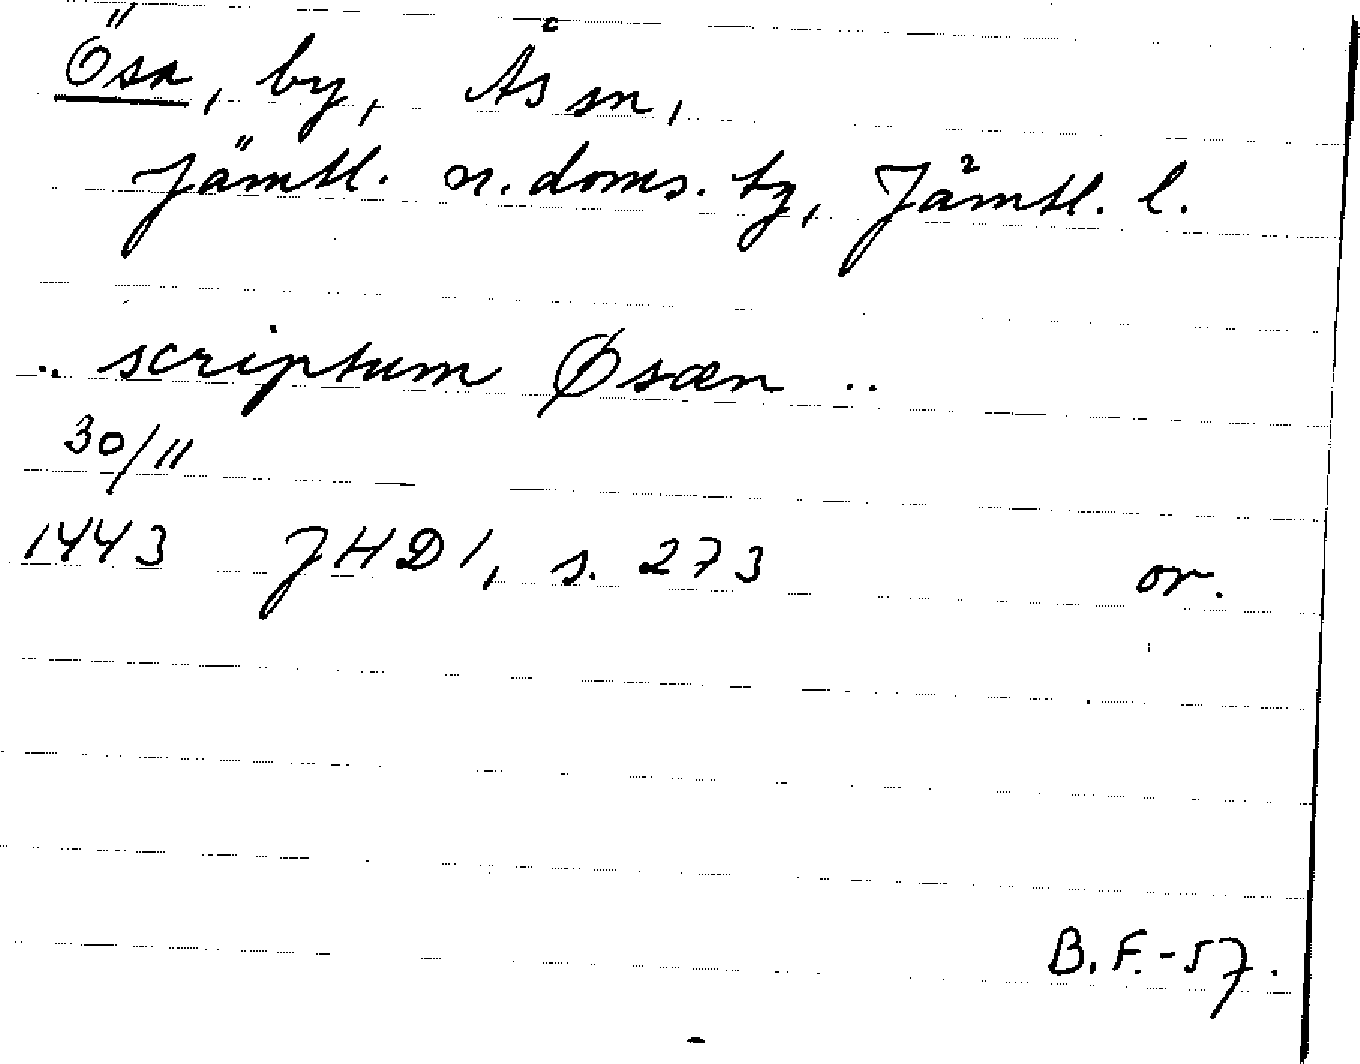 Ösa, by, Ås sn,
Jämtl. n. doms. tg, Jämtl. l.
.. scriptum Øsæn ..
30/11
1443 JHD 1, s. 273 or.
B.F.-57.